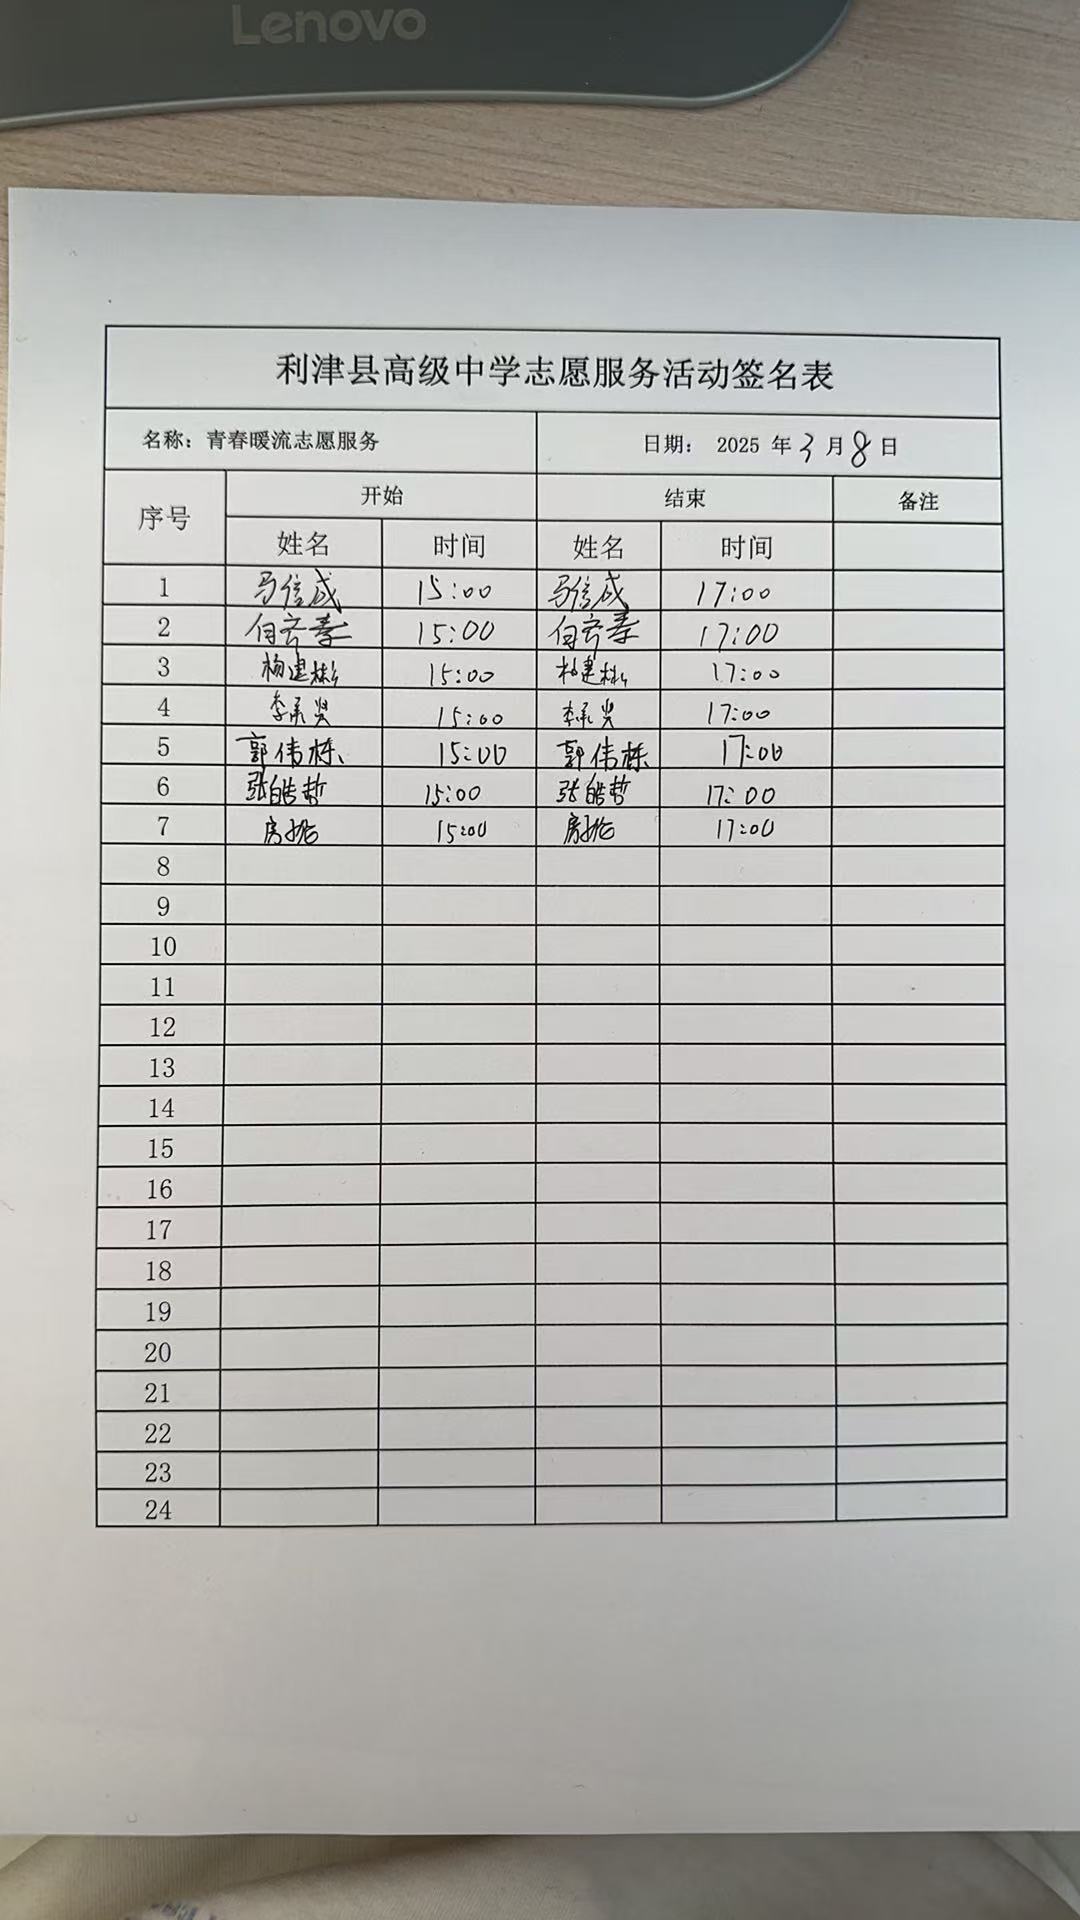 Lenovo
利津县高级中学志愿服务活动签名表
名称：青春暖流志愿服务 日期： 2025 年 3 月 8 日
序号 开始 结束 备注
姓名 时间 姓名 时间
1 马信成 15:00 马信成 17:00
2 15:00 17:00
3 杨建彬 15:00 杨建彬 17:00
4 李承贤 15:00 李承贤 17:00
5 郭伟栋 15:00 郭伟栋 17:00
6 张皓哲 15:00 张皓哲 17:00
7 房 15:00 房 17:00
8
9
10
11
12
13
14
15
16
17
18
19
20
21
22
23
24